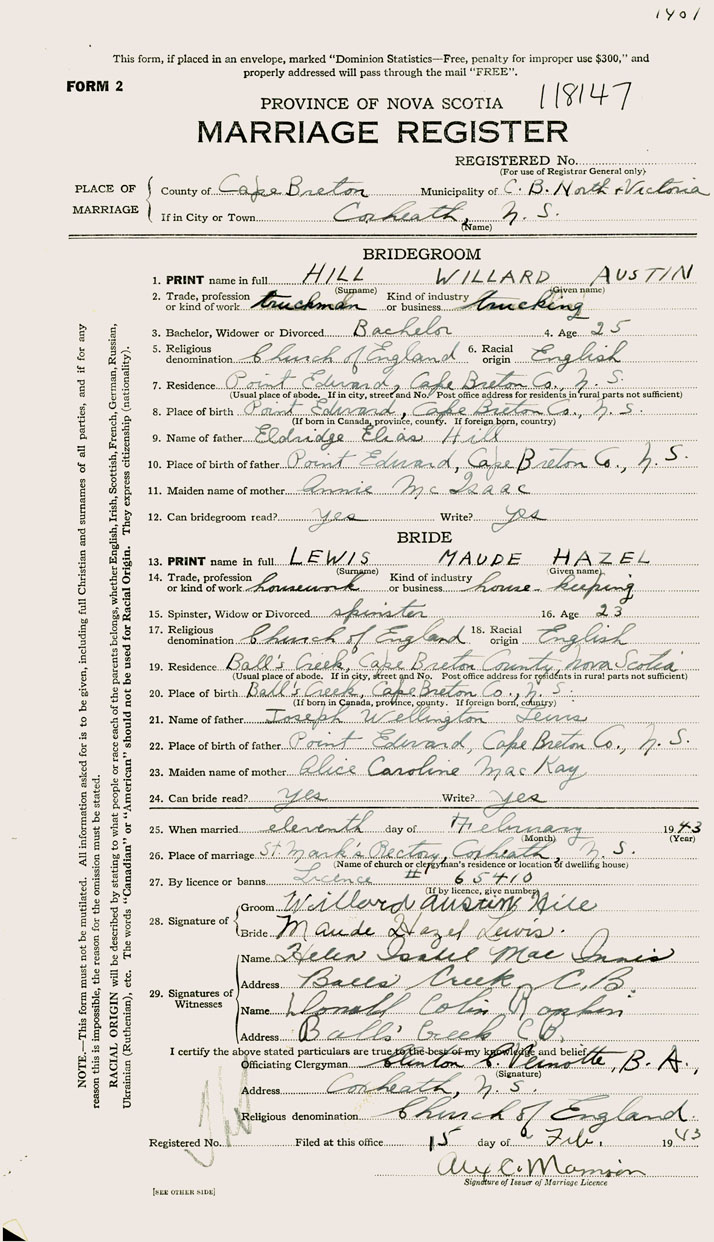 1401
This form, if placed in an envelope, marked "Dominion Statistics—Free, penalty for improper use $300," and
properly addressed will pass through the mail "FREE".
FORM 2
118147
PROVINCE OF NOVA SCOTIA
MARRIAGE REGISTER
REGISTERED No.
(For use of Registrar General only)
PLACE OF MARRIAGE
County of Cape Breton Municipality of C. B. North & Victoria
If in City or Town Coxheath, N. S.
(Name)
BRIDEGROOM
1. PRINT name in full HILL WILLARD AUSTIN
(Surname) (Given name)
2. Trade, profession or kind of work truckman Kind of industry or business trucking
3. Bachelor, Widower or Divorced Bachelor 4. Age 25
5. Religious denomination Church of England 6. Racial origin English
7. Residence Point Edward, Cape Breton Co., N. S.
(Usual place of abode. If in city, street and No. Post office address for residents in rural parts not sufficient)
8. Place of birth Point Edward, Cape Breton Co., N. S.
(If born in Canada, province, county. If foreign born, country)
9. Name of father Eldridge Elias Hill
10. Place of birth of father Point Edward, Cape Breton Co., N. S.
11. Maiden name of mother Annie Mc Isaac
12. Can bridegroom read? yes Write? yes
BRIDE
13. PRINT name in full LEWIS MAUDE HAZEL
(Surname) (Given name)
14. Trade, profession or kind of work housework Kind of industry or business house-keeping
15. Spinster, Widow or Divorced spinster 16. Age 23
17. Religious denomination Church of England 18. Racial origin English
19. Residence Ball's Creek, Cape Breton County, Nova Scotia
(Usual place of abode. If in city, street and No. Post office address for residents in rural parts not sufficient)
20. Place of birth Ball's Creek, Cape Breton Co., N. S.
(If born in Canada, province, county. If foreign born, country)
21. Name of father Joseph Wellington Lewis
22. Place of birth of father Point Edward, Cape Breton Co., N. S.
23. Maiden name of mother Alice Caroline MacKay
24. Can bride read? yes Write? yes
25. When married eleventh day of February 1943
(Month) (Year)
26. Place of marriage St Mark's Rectory, Coxheath, N. S.
(Name of church or clergyman's residence or location of dwelling house)
27. By licence or banns Licence # 65410
(If by licence, give number)
28. Signature of
Groom Willard Austin Hill
Bride Maude Hazel Lewis.
29. Signatures of Witnesses
Name Helen Isabel Mac Innis
Address Balls Creek, C.B.
Name Donald Colin
Address Balls Creek C B.
I certify the above stated particulars are true to the best of my knowledge and belief.
Officiating Clergyman Clinton B. A.,
(Signature)
Address Coxheath, N. S.
Religious denomination Church of England.
Registered No. Filed at this office 15 day of Feb. 1943
Signature of Issuer of Marriage Licence
[SEE OTHER SIDE]
NOTE.—This form must not be mutilated. All information asked for is to be given, including full Christian and surnames of all parties, and if for any
reason this is impossible, the reason for the omission must be stated.
RACIAL ORIGIN will be described by stating to what people or race each of the parents belongs, whether English, Irish, Scottish, French, German, Russian,
Ukrainian (Ruthenian), etc. The words "Canadian" or "American" should not be used for Racial Origin. They express citizenship (nationality).